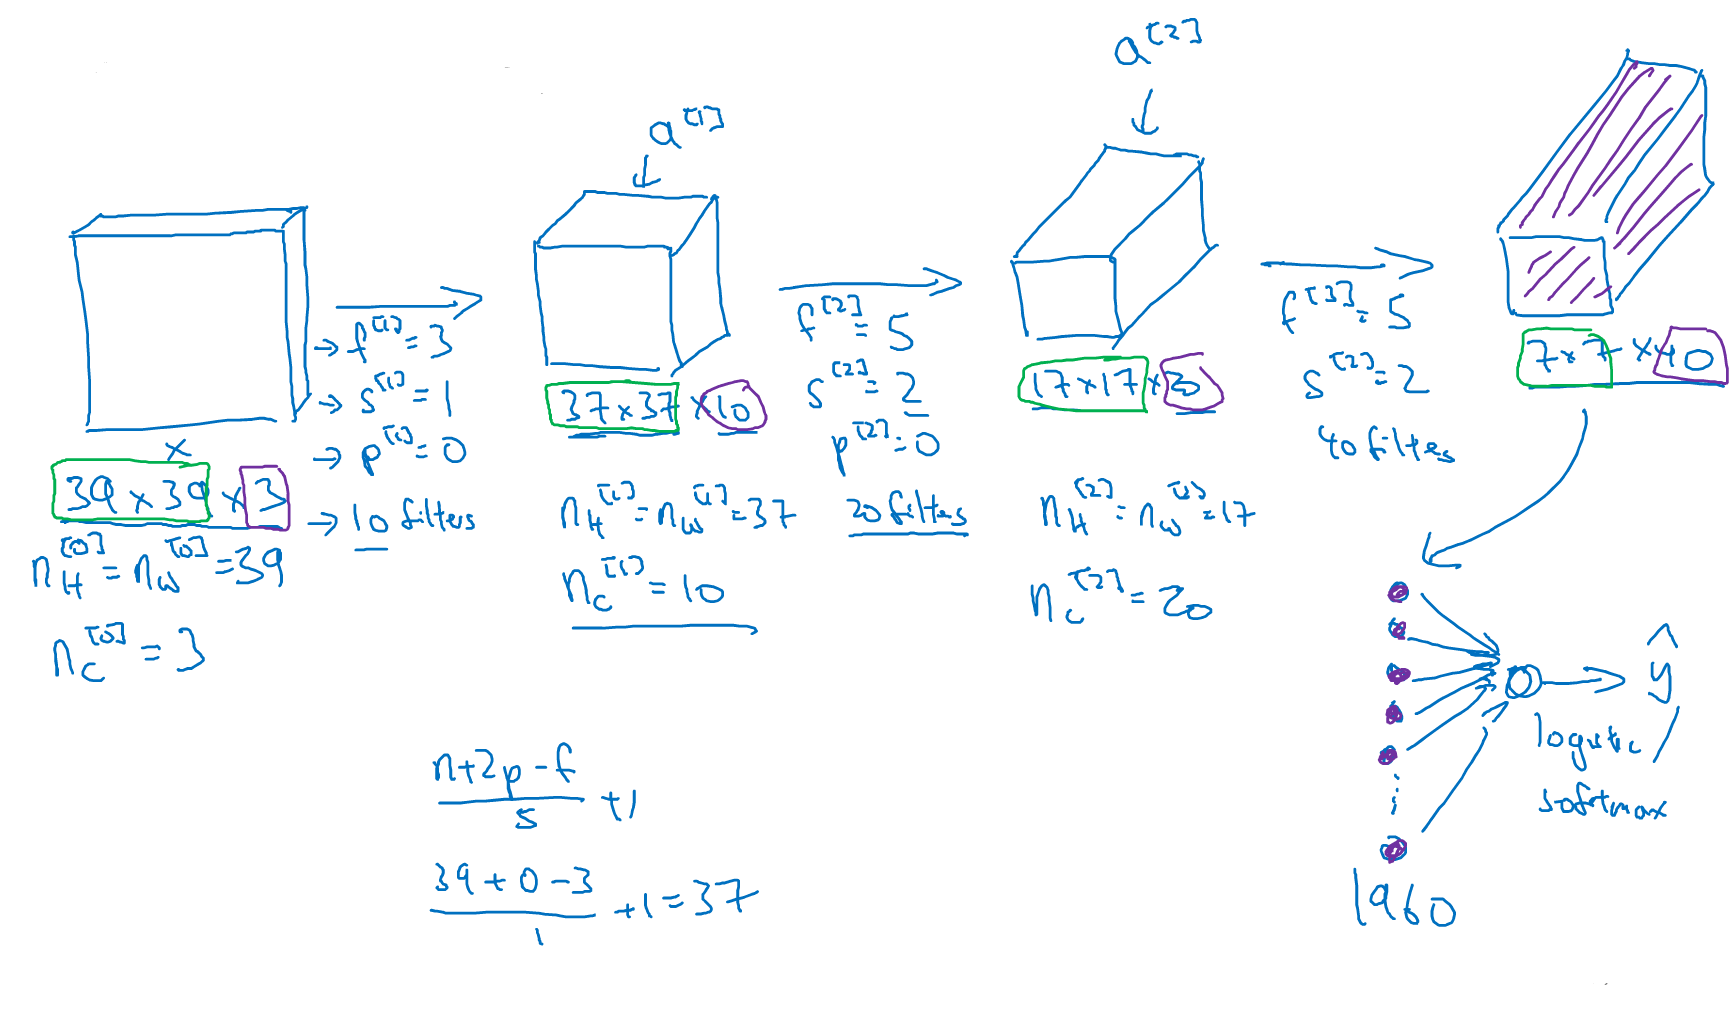 a^[1]
a^[2]
x
39 x 39 x 3
n_H^[0] = n_W^[0] = 39
n_C^[0] = 3
→ f^[1] = 3
→ s^[1] = 1
→ p^[1] = 0
→ 10 filters
37 x 37 x 10
n_H^[1] = n_W^[1] = 37
n_C^[1] = 10
f^[2] = 5
s^[2] = 2
p^[2] = 0
20 filters
17 x 17 x 20
n_H^[2] = n_W^[2] = 17
n_C^[2] = 20
f^[3] = 5
s^[2] = 2
40 filters
7 x 7 x 40
ŷ
logistic /
softmax
1960
n+2p-f
s
+1
39 + 0 - 3
1
+1 = 37